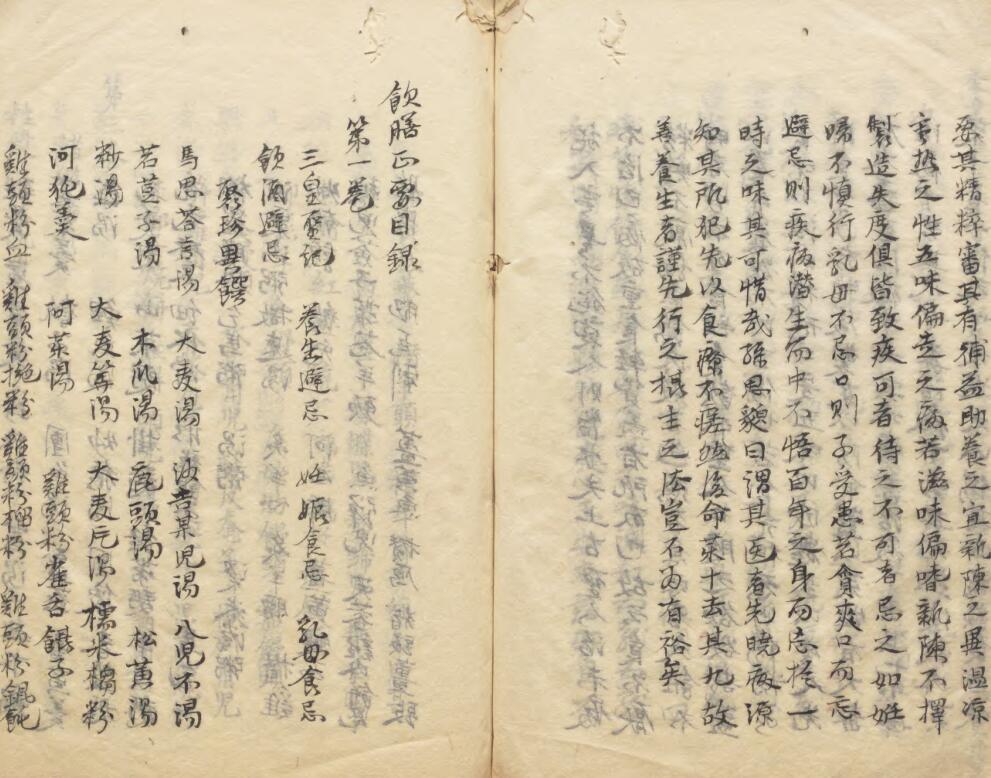 要其精粹審其有補益助養之宜新陳之異温凉
寒热之性五味偏走之病若滋味偏嗜新陳不擇
製造失度俱皆致疾可者待之不可者忌之如姙
婦不慎行乳母不忌口則子受患若貪爽口而忘
避忌則疾病潜生而中不悟百年之身而忘於一
時之味其可惜哉孫思邈曰謂其医者先暁病源
知其所犯先以食療不瘥然後命薬十去其九故
善養生者謹先行之摂生之法豈不為有裕矣
飲膳正要目録
第一巻
三皇聖記 養生避忌 姙娠食忌 乳母食忌
飲酒避忌
聚珍異饌
馬思荅吉湯 大麦湯 沙吉某児湯 八児不湯
苕荳子湯 木瓜湯 鹿頭湯 松黄湯
粆湯 大麦筭湯 大麦片湯 糯米搊粉
河㹠羮 阿菜湯 雞頭粉雀舌𩜾子
雞頭粉血 雞頭粉撧粉 雞頭粉搊粉 雞頭粉餛飩